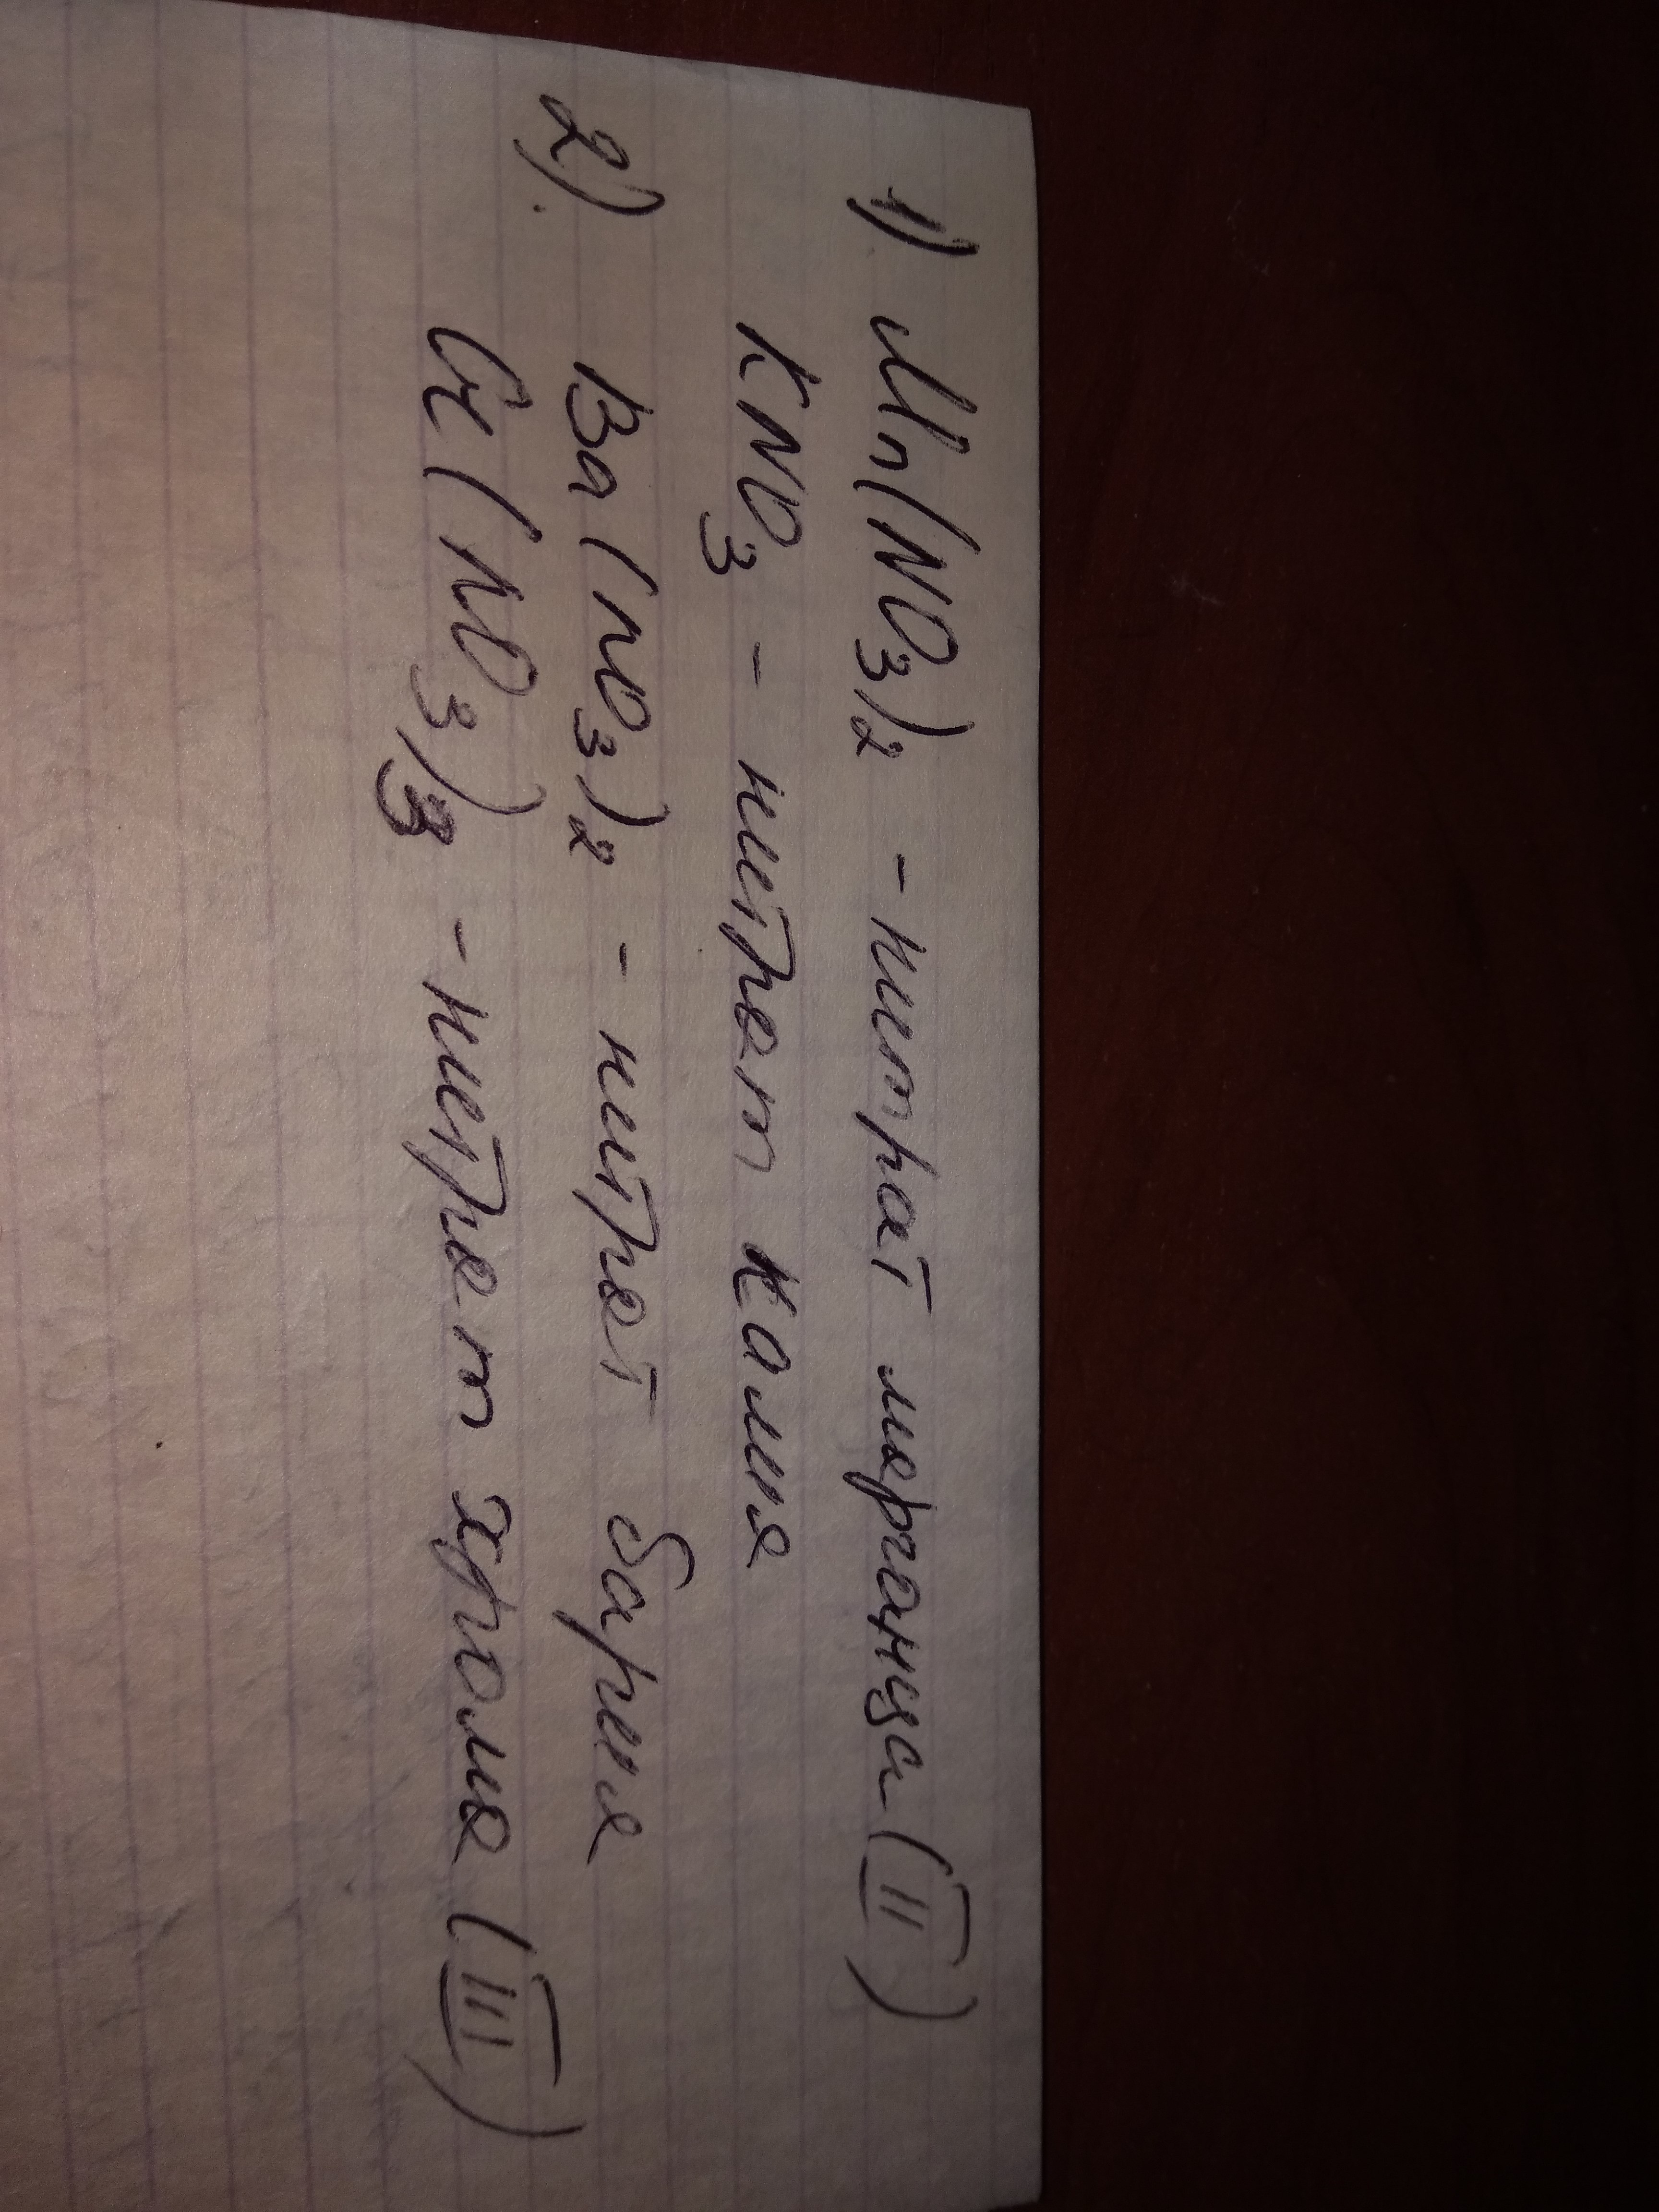 1) Mn(NO₃)₂ - нитрат марганца (II)
KNO₃ - нитрат калия
2) Ba(NO₃)₂ - нитрат бария
Cr(NO₃)₃ - нитрат хрома (III)